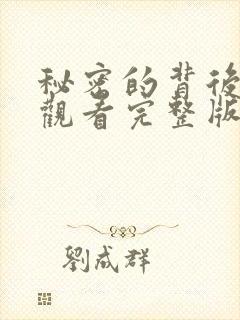 秘密的背後
觀看完整版
劉成群